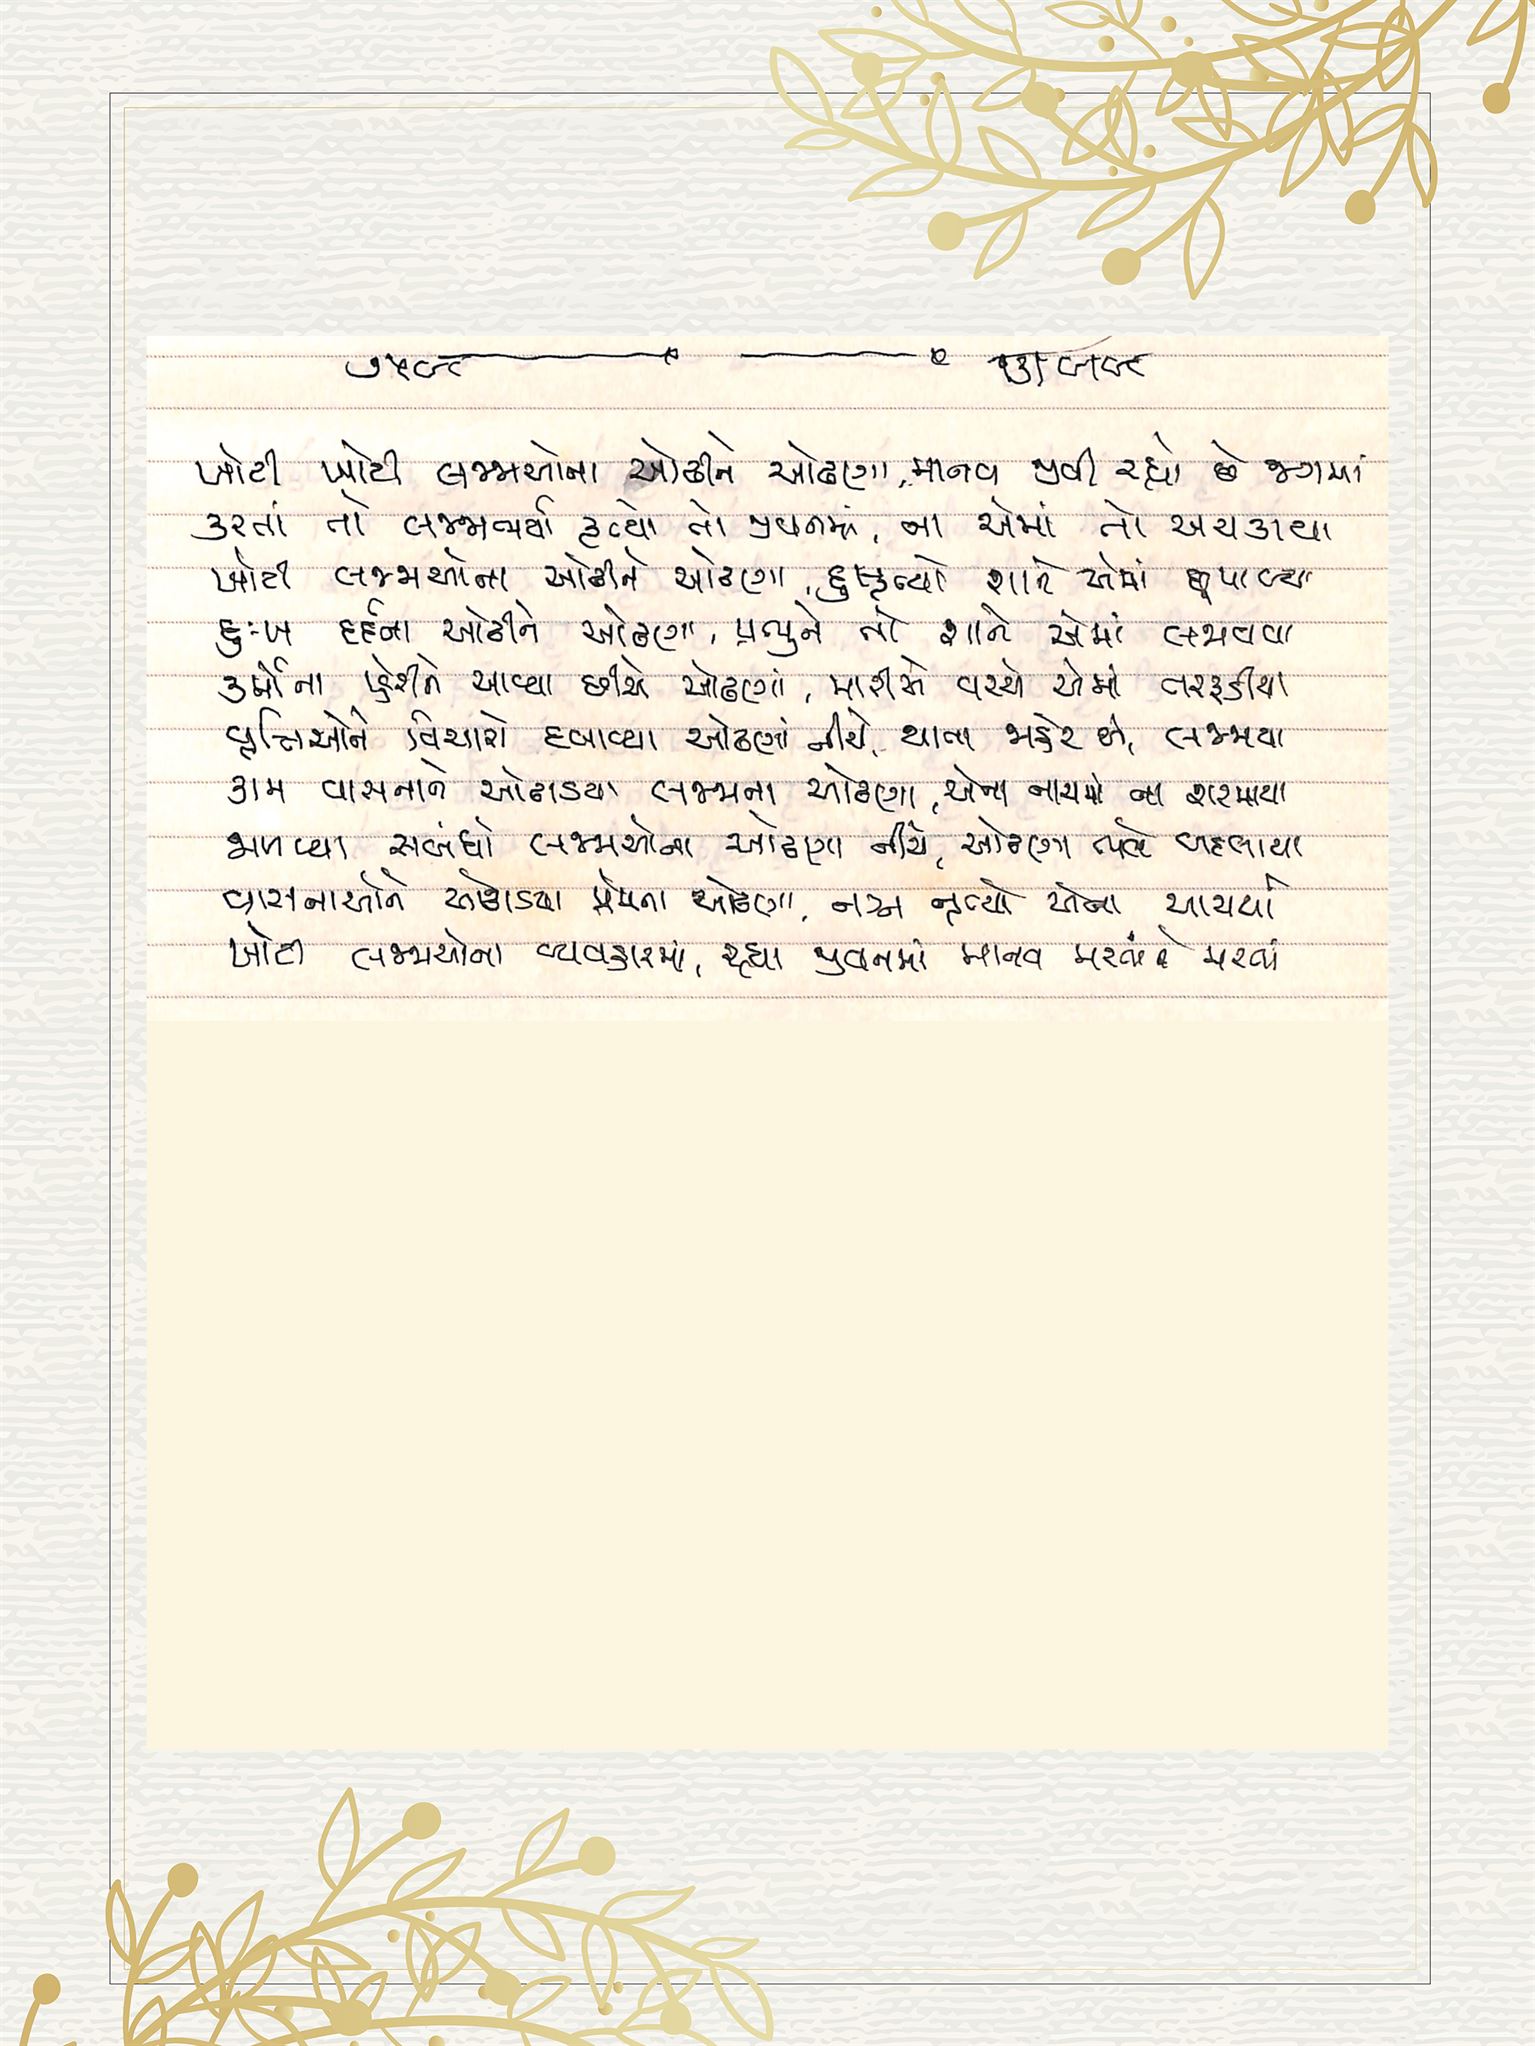 ખોટી ખોટી લજ્જાઓના ઓઢીને ઓઢણા, માનવ જીવી રહ્યો છે જગમાં
કરતાં તો લજ્જાભર્યા કૃત્યો તો જીવનમાં, ના એમાં તો અચકાયા
ખોટી લજ્જાઓના ઓઢીને ઓઢણા, દુષ્કૃત્યો શાને એમાં છુપાવ્યા
દુઃખ દર્દના ઓઢીને ઓઢણા, પ્રભુને તો શાને એમાં લજવવા
કર્મોના પહેરીને આવ્યા છીએ ઓઢણાં, મારીએ વરચે એમાં તરફડીયા
વૃત્તિઓને વિચારો દબાવ્યા ઓઢણાં નીચે, થાતા જાહેર છો, લજ્જાયા
કામ વાસનાને ઓઢાડયા લજ્જાના ઓઢણા, એના નાચમાં ના શરમાયા
જાળવ્યા સબંધો લજ્જાઓના ઓઢણા નીચે, ઓઢણા બદલાયા
વાસનાઓને ઓઢાડયા પ્રેમના ઓઢણા, નગ્ન નૃત્યો એના આચર્યા
ખોટી લજ્જાઓના વ્યવહારમાં, રહ્યા જીવનમાં માનવ મરતાં ને મરતાં